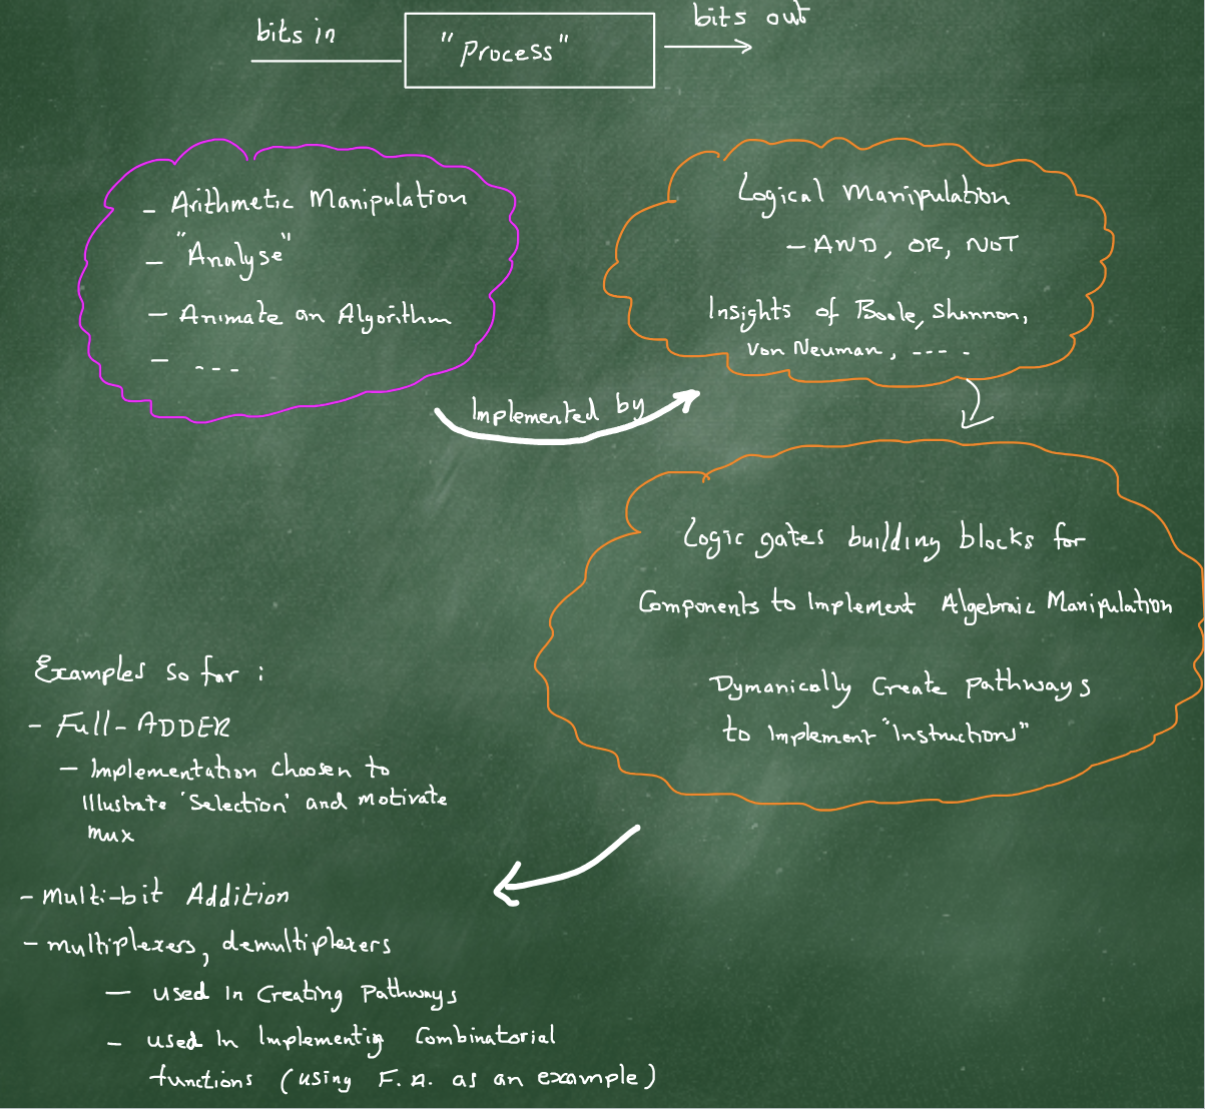 bits in
"Process"
bits out
- Arithmetic Manipulation
- "Analyse"
- Animate an Algorithm
- ---
Logical Manipulation
- AND, OR, NOT
Insights of Boole, Shannon,
Von Neuman, ----
Implemented by
Logic gates building blocks for
Components to Implement Algebraic Manipulation
Dymanically Create pathways
to Implement "Instructions"
Examples so far :
- Full-ADDER
- Implementation Choosen to
Illustrate 'Selection' and motivate
mux
- multi-bit Addition
- multiplexers, demultiplexers
- used in Creating Pathways
- used In Implementig Combinatorial
functions (using F.A. as an example)